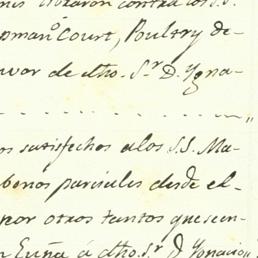 libraron contra los S.S.
Court, Poultry de-
vor de dho. Sr. D. Ygna-
os satisfechos a los S.S. Ma-
bonos parciales desde el
por otros tantos que en-
á dho. Sr. D. Ygnacio